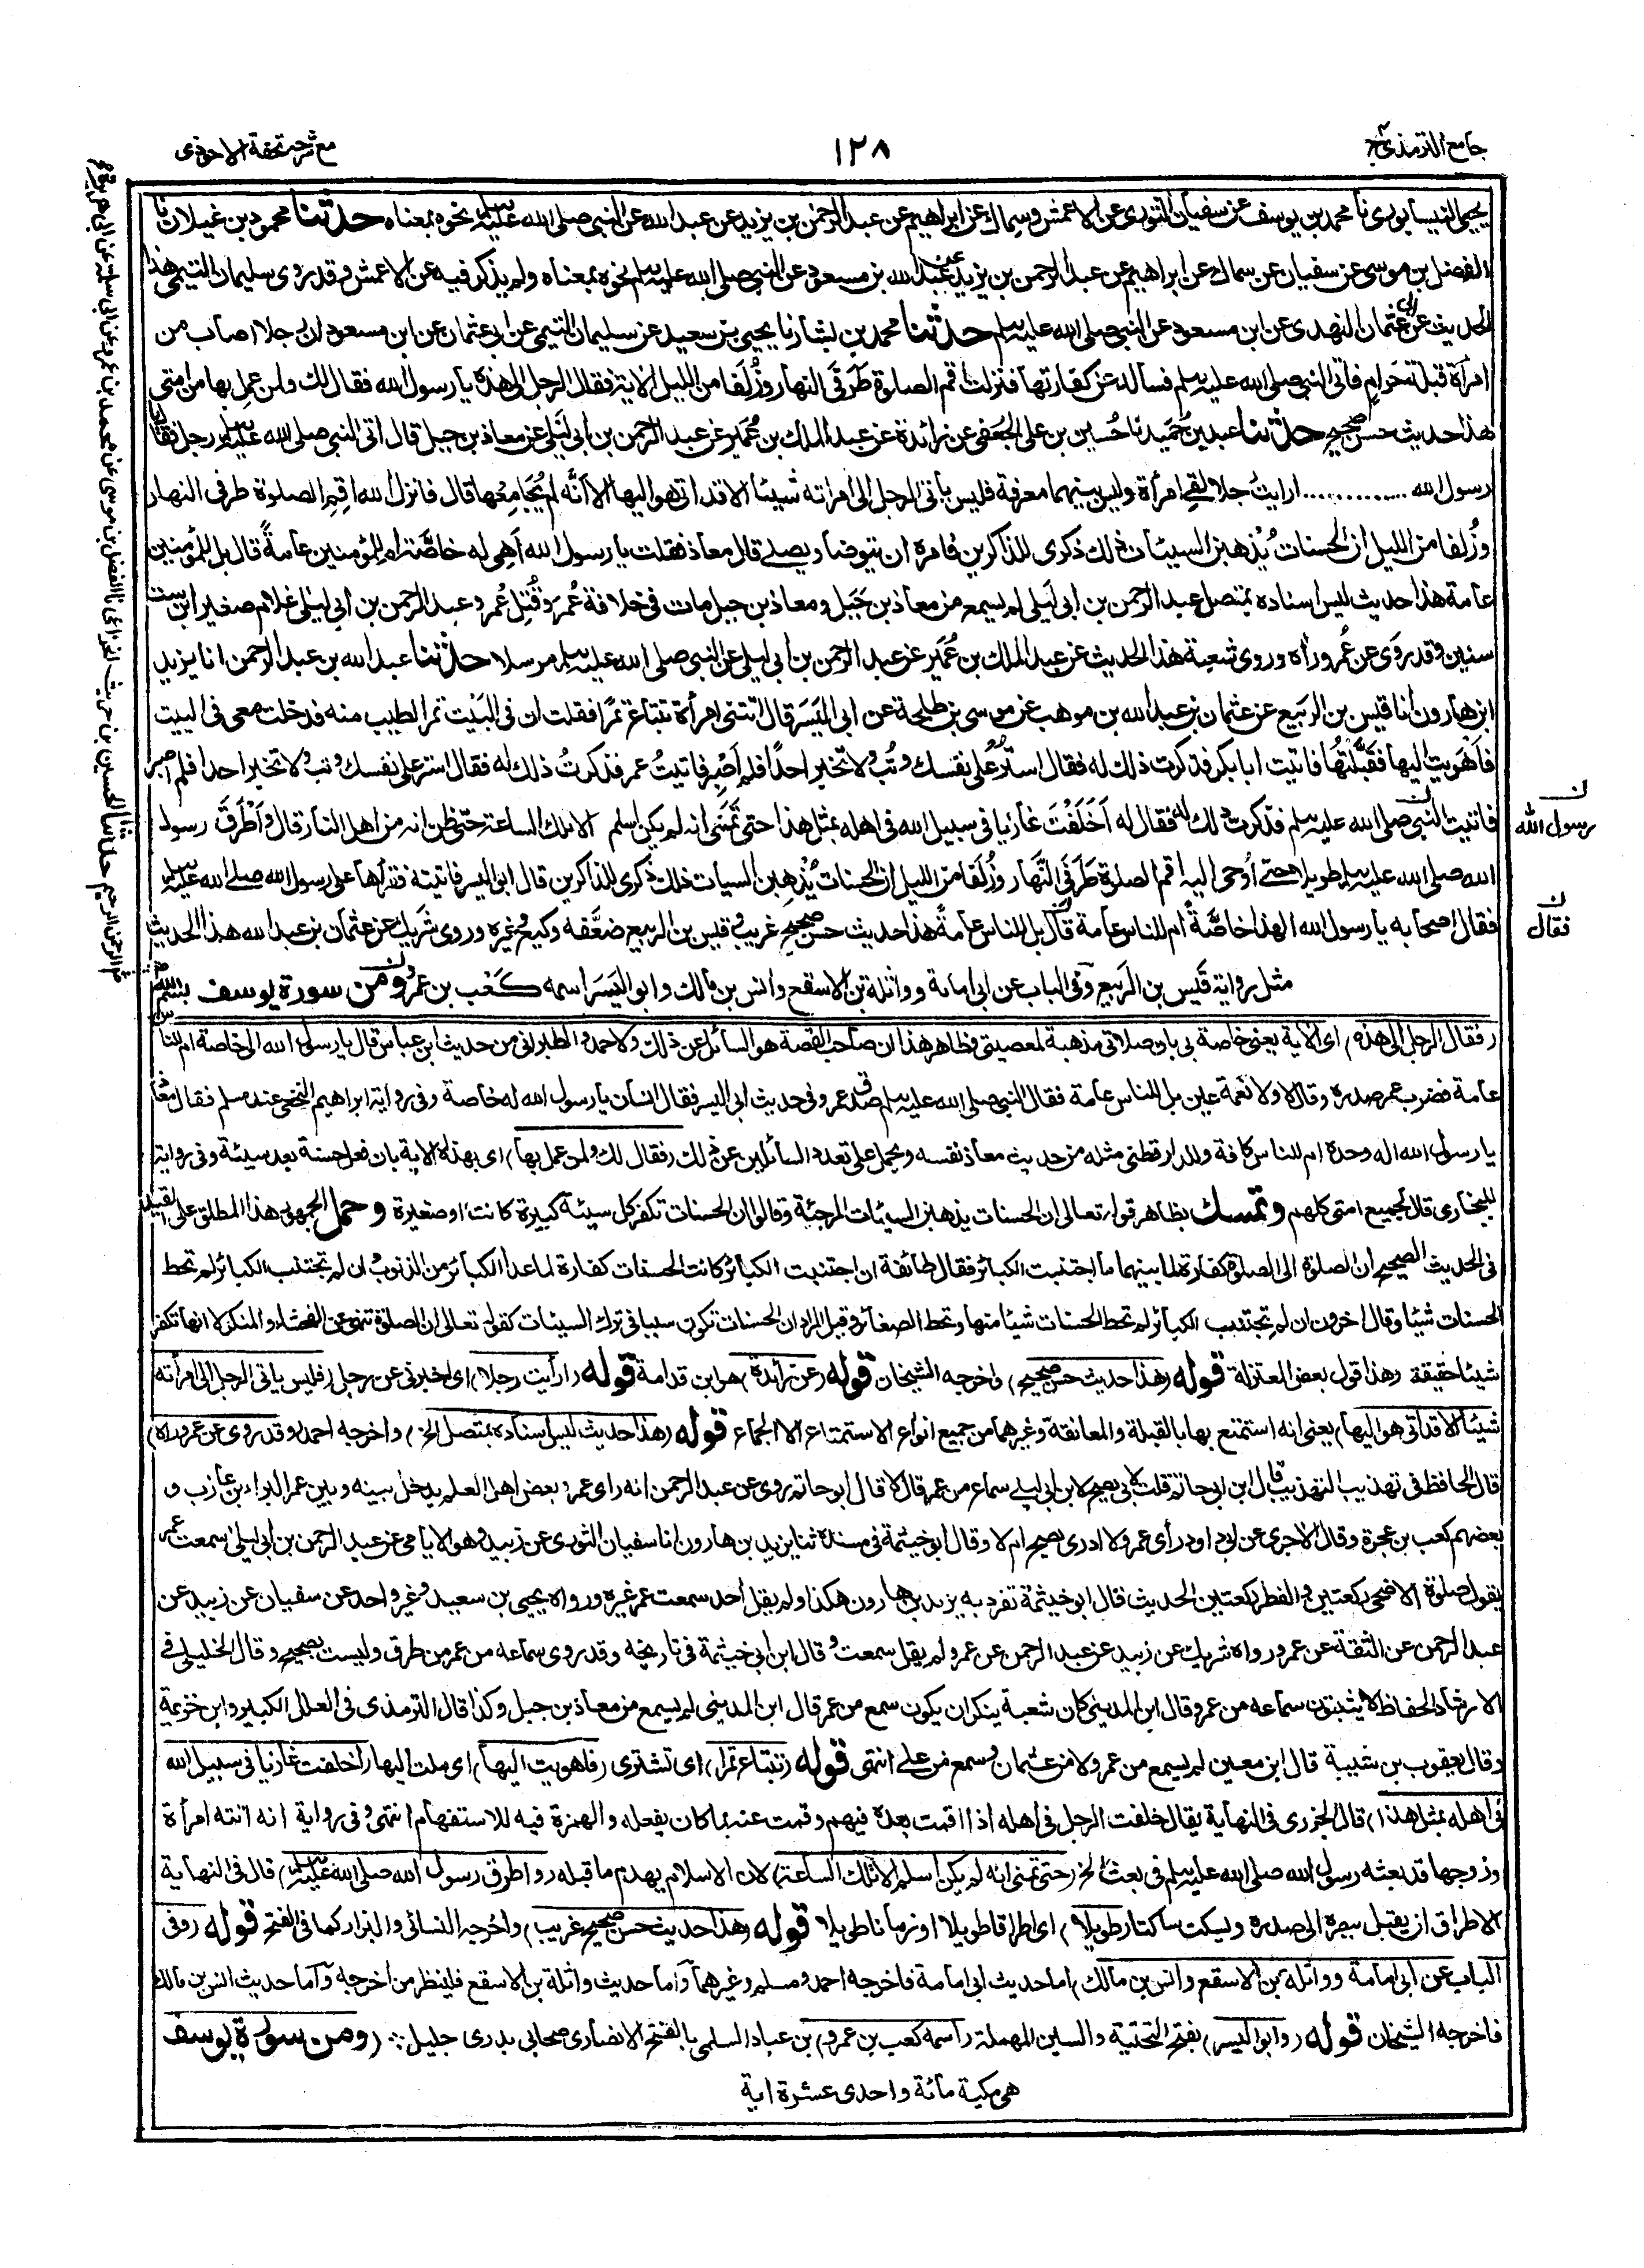 جامع الترمذی ج
١٢٨
مع شرحه تحفة الاحوذی
یحیی النیسابوری نا محمد بن یوسف عن سفیان الثوری عن الاعمش وسماك عن ابراهیم عن عبد الرحمن بن یزید عن عبد الله عن النبی صلی الله علیه وسلم نحوه بمعناه حدثنا محمود بن غیلان نا
الفضل بن موسی عن سفیان عن سماك عن ابراهیم عن عبد الرحمن بن یزید عن عبد الله بن مسعود عن النبی صلی الله علیه وسلم نحوه بمعناه ولم یذکر فیه عن الاعمش وقد روی سلیمان التیمی هذا
الحدیث عن ابی عثمان النهدی عن ابن مسعود عن النبی صلی الله علیه وسلم حدثنا محمد بن بشار نا یحیی بن سعید عن سلیمان التیمی عن ابی عثمان عن ابن مسعود ان رجلا اصاب من
امرأة قبلة حرام فاتی النبی صلی الله علیه وسلم فسأله عن کفارتها فنزلت اقم الصلوة طَرَفَیِ النهار وزُلَفا من اللیل الایة فقال الرجل الی هذه یا رسول الله فقال لك ولمن عمل بها من امتی
هذا حدیث حسن صحیح حدثنا عبد بن حُمید نا حُسین بن علی الجُعفی عن زائدة عن عبد الملك بن عُمَیر عن عبد الرحمن بن ابی لَیلی عن معاذ بن جبل قال اتی النبی صلی الله علیه وسلم رجل فقال یا
رسول الله ............. ارایت رجلا لقی امرأة ولیس بینهما معرفة فلیس یأتی الرجل الی امراته شیئا الا قد اتی هو الیها الا اَنَّه لم یُجَامِعْها قال فانزل الله اقِمِ الصلوة طرفی النهار
وزُلفا من اللیل ان الحسنات یُذهبن السیئات ذلك ذکری للذاکرین فامره ان یتوضأ ویصلی قال معاذ فقلت یا رسول الله اَهِیَ له خاصَّة ام للمؤمنین عامةً قال بل للمؤمنین
عامة هذا حدیث لیس اسناده بمتصل عبد الرحمن بن ابی لیلی لم یسمع من معاذ بن جَبَل ومعاذ بن جبل مات فی خلافة عُمَر وقُتِل عُمر وعبد الرحمن بن ابی لیلی غلام صغیر ابن ست
سنین وقد رَوَی عن عُمر ورآه وروی شعبة هذا الحدیث عن عبد الملك بن عُمَیر عن عبد الرحمن بن ابی لیلی عن النبی صلی الله علیه وسلم مرسلا حدثنا عبد الله بن عبد الرحمن انا یزید
ابن هارون انا قیس بن الربیع عن عثمان بن عبد الله بن موهب عن موسی بن طلحة عن ابی الیَسَر قال اَتَتْنی امرأة تبتاع تمرًا فقلت ان فی البَیْت تمرا اطیب منه فدخلت معی فی البیت
فاَهْوَیت الیها فقَبَّلتُها فاتیت ابا بکر فذکرت ذلك له فقال استُرْ علی نفسك وتُبْ ولا تخبر احدًا فلم اَصْبِر فاتیتُ عمر فذکرتُ ذلك له فقال استر علی نفسك وتب ولا تخبر احدا فلم اصبر
فاتیت النبی صلی الله علیه وسلم فذکرت ذلك له فقال له اَخَلَفْتَ غازیا فی سبیل الله فی اهله بمثل هذا حتی تَمَنّی انه لم یکن اسلم الا تلك الساعة حتی ظن انه من اهل النار قال وَاَطْرَقَ رسول
الله صلی الله علیه وسلم طویلا حتی اُوحی الیه اقم الصلوة طَرَفَیِ النَّهار وزُلَفا من اللیل ان الحسنات یُذْهِبْن السیأت ذلك ذکری للذاکرین قال ابو الیسر فاتیته فقرأها علی رسول الله صلی الله علیه وسلم
فقال اصحابه یا رسول الله الهذا خاصَّةً ام للناس عامة قال بل للناس عامةً هذا حدیث حسن صحیح غریب وقیس بن الربیع ضعَّفه وکیع وغیره وروی شَرِیك عن عثمان بن عبد الله هذا الحدیث
مثل روایة قَیس بن الرَبیع وفی الباب عن ابی امامة وواثلة بن الاسقع وانس بن مالك وابو الیَسَر اسمه کَعْب بن عمرو ومن سورة یوسف بسم الله
ن
رسول الله
ن
فقال
الرحمن الرحیم حدثنا الحسین بن حریث الخزاعی نا الفضل بن موسی عن محمد بن عمرو عن ابی سلمة عن ابی هریرة
(فقال الرجل الی هذه) ای الایة یعنی خاصة بی بان صلاتی مذهبة لمعصیتی وظاهر هذا ان صاحب القصة هو السائل عن ذلك ولاحمد والطبرانی من حدیث ابن عباس قال یا رسول الله الی خاصة ام للناس
عامة فضرب عمر صدره وقال لا ولا نعمة عین بل للناس عامة فقال النبی صلی الله علیه وسلم صدق عمر وفی حدیث ابی الیسر فقال انسان یا رسول الله له خاصة وفی روایة ابراهیم النخعی عند مسلم فقال معاذ
یا رسول الله اله وحده ام للناس کافة وللدارقطنی مثله من حدیث معاذ نفسه ویحمل علی تعدد السائلین عن ذلك (فقال لك ولمن عمل بها) ای بهذه الایة بان فعل حسنة بعد سیئة وفی روایة
للبخاری قال لجمیع امتی کلهم وتمسك بظاهر قوله تعالی ان الحسنات یذهبن السیئات المرجئة وقالوا ان الحسنات تکفر کل سیئة کبیرة کانت او صغیرة وحمل الجمهور هذا المطلق علی المقید
فی الحدیث الصحیح ان الصلوة الی الصلوة کفارة لما بینهما ما اجتنبت الکبائر فقال طائفة ان اجتنبت الکبائر کانت الحسنات کفارة لما عدا الکبائر من الذنوب وان لم تجتنب الکبائر لم تحط
الحسنات شیئا وقال اخرون ان لم تجتنب الکبائر لم تحط الحسنات شیئا منها وتحط الصغائر وقیل المراد ان الحسنات تکون سببا فی ترك السیئات کقوله تعالی ان الصلوة تنهی عن الفحشاء والمنکر لا انها تکفر
شیئا حقیقة وهذا قول بعض المعتزلة قوله (هذا حدیث حسن صحیح) واخرجه الشیخان قوله (عن زائدة) هو ابن قدامة قوله (ارأیت رجلا) ای اخبرنی عن رجل (فلیس یاتی الرجل الی امرأته
شیئا الا قد اتی هو الیها) یعنی انه استمتع بها بالقبلة والمعانقة وغیرهما من جمیع انواع الاستمتاع الا الجماع قوله (هذا حدیث لیس اسناده بمتصل الخ) واخرجه احمد (وقد روی عن عمر وراه)
قال الحافظ فی تهذیب التهذیب قال ابن ابی حاتم قلت لابی یصح لابن ابی لیلی سماع من عمر قال لا قال ابو حاتم روی عن عبد الرحمن انه رای عمر وبعض اهل العلم یدخل بینه وبین عمر البراء بن عازب و
بعضهم کعب بن عجرة وقال الاجری عن ابی داود رأی عمر ولا ادری یصح ام لا وقال ابو خیثمة فی مسنده ثنا یزید بن هارون انا سفیان الثوری عن زبید وهو الایامی عن عبد الرحمن بن ابی لیلی سمعت عمر
یقول صلوة الاضحی رکعتین والفطر رکعتین الحدیث قال ابو خیثمة تفرد به یزید بن هارون هکذا ولم یقل احد سمعت عمر غیره ورواه یحیی بن سعید وغیر واحد عن سفیان عن زبید عن
عبد الرحمن عن الثقة عن عمر ورواه شریك عن زبید عن عبد الرحمن عن عمر ولم یقل سمعت وقال ابن ابی خیثمة فی تاریخه وقد روی سماعه من عمر من طرق ولیست بصحیح وقال الخلیلی فی
الارشاد الحفاظ لا یثبتون سماعه من عمر وقال ابن المدینی کان شعبة ینکر ان یکون سمع من عمر قال ابن المدینی لم یسمع من معاذ بن جبل وکذا قال الترمذی فی العلل الکبیر وابن خزیمة
وقال یعقوب بن شیبة قال ابن معین لم یسمع من عمر ولا من عثمان وسمع من علی انتهی قوله (تبتاع تمرا) ای تشتری (فاهویت الیها) ای ملت الیها (اخلفت غازیا فی سبیل الله
فی اهله بمثل هذا) قال الجزری فی النهایة یقال خلفت الرجل فی اهله اذا اقمت بعده فیهم وقمت عنه بما کان یفعله والهمزة فیه للاستفهام انتهی وفی روایة انه اتته امرأة
وزوجها قد بعثه رسول الله صلی الله علیه وسلم فی بعث الخ (حتی تمنی انه لم یکن اسلم الا تلك الساعة) لان الاسلام یهدم ما قبله (واطرق رسول الله صلی الله علیه وسلم) قال فی النهایة
الاطراق ان یقبل ببصره الی صدره ویسکت ساکتا (طویلا) ای اطراقا طویلا او زمانا طویلا قوله (هذا حدیث حسن صحیح غریب) واخرجه النسائی والبزار کما فی الفتح قوله (وفی
الباب عن ابی امامة وواثلة بن الاسقع وانس بن مالك) اما حدیث ابی امامة فاخرجه احمد ومسلم وغیرهما واما حدیث واثلة بن الاسقع فلینظر من اخرجه واما حدیث انس بن مالك
فاخرجه الشیخان قوله (وابو الیسر) بفتح التحتیة والسین المهملة (اسمه کعب بن عمرو) بن عباد السلمی بالفتح الانصاری صحابی بدری جلیل (ومن سورة یوسف
هی مکیة مائة واحدی عشرة ایة